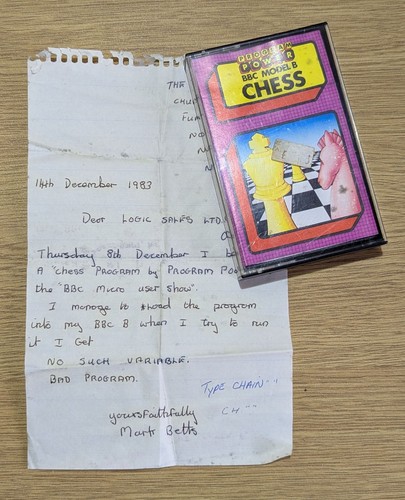 PROGRAM
POWER
BBC MODEL B
CHESS
THE
14th December 1983
Dear LOGIC SALES LTD.
Thursday 8th December I
A "chess" PROGRAM by PROGRAM
the "BBC Micro user show".
I manage to load the program
into my BBC B when I try to run
it I Get
NO SUCH VARIABLE.
BAD PROGRAM.
TYPE CHAIN""
CH ""
yoursFaithfully
Mark Betts